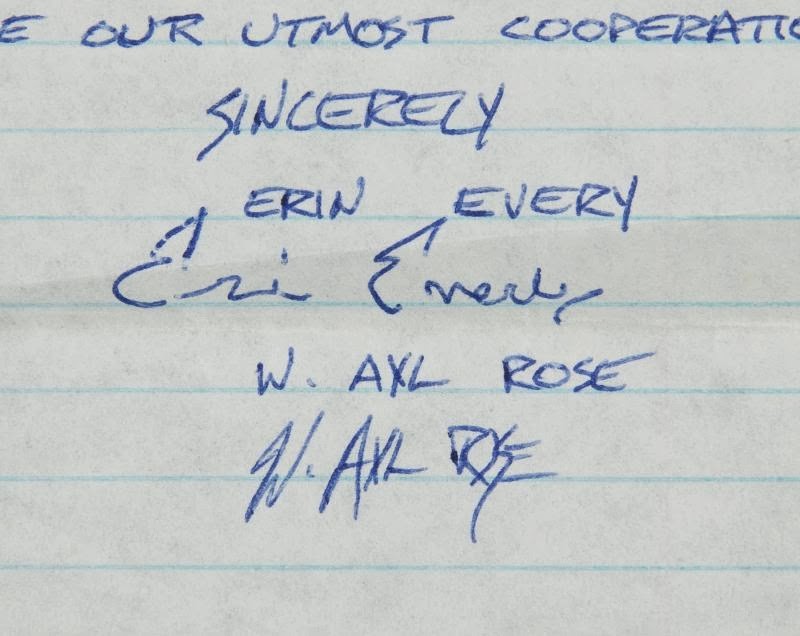 E OUR UTMOST COOPERATIO
SINCERELY
ERIN EVERY
Erin Everly
W. AXL ROSE
W. AXL ROSE